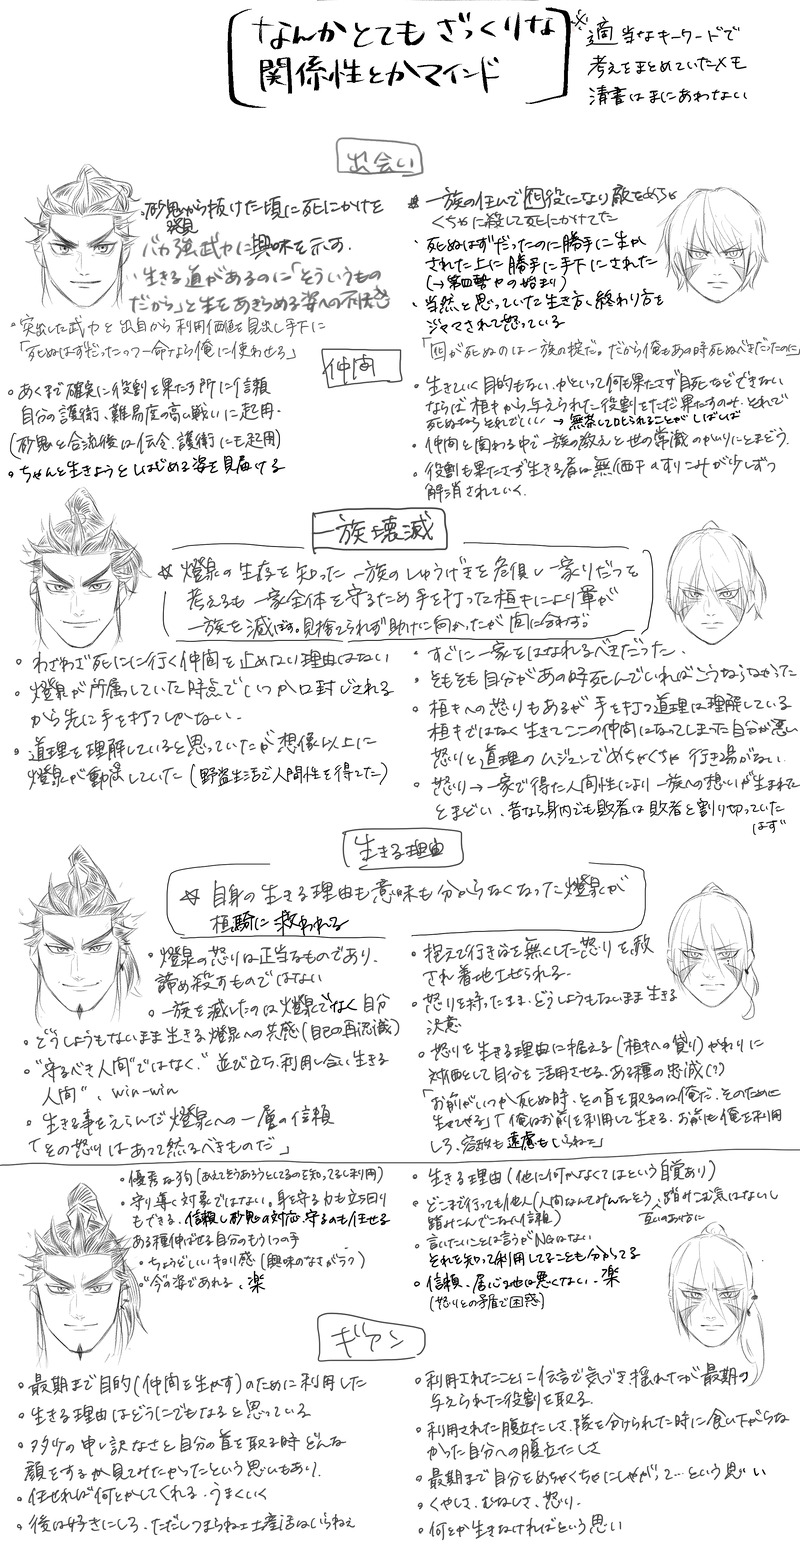 なんかとても ざっくりな
関係性とかマインド
※適当なキーワードで
考えをまとめていたメモ
清書はまにあわない
出会い
・砂鬼から抜けた頃に死にかけを
発見
バカ強武力に興味を示す.
・生きる道があるのに「そういうもの
だから」と生をあきらめる姿への不快感
・突出した武力と出自から利用価値を見出し手下に
「死ぬはずだったって命なら俺に使わせろ」
・一族の仕事で囮役になり敵をめちゃ
くちゃに殺して死にかけてた
・死ぬはずだったのに勝手に生か
された上に勝手に手下にされた
・当然と思っていた生き方、終わり方を
ジャマされて怒っている
「囮が死ぬのは一族の掟だ。だから俺もあの時死ぬべきだったのに」
仲間
・あくまで確実に役割を果たす所に信頼
自分の護衛、難易度の高い戦いに起用.
(砂鬼と合流後は伝令、護衛にも起用)
・ちゃんと生きようとしはじめる姿を見届ける
・生きていく目的もない.かといって何も果たさず自死などできない
ならば桓キから与えられた役割をただ果たすのみ、それで
死ぬならそれでいい → 無茶して叱られることがしばしば
・仲間と関わる中で一族の教えと世の常識のちがいにとまどう.
・役割も果たさず生きる者は無価千のすりこみが少しずつ
解消されていく.
一族壊滅
☆ 燈泉の生存を知った 一族のしゅうげきを危惧し一家りだつを
考えるも 一家全体を守るため手を打った桓キにより軍が
一族を滅ぼす。見捨てられず助けに向かったが間に合わず。
・わざわざ死にに行く仲間を止めない理由はない
・燈泉が所属していた時点でいつか口封じされる
から先に手を打つしかない.
・道理を理解していると思っていたが想像以上に
燈泉が動揺していた(野盗生活で人間性を得てた)
・すぐに一家をはなれるべきだった.
・そもそも自分があの時死んでいればこうならなかった
・桓キへの怒りもあるが手を打つ道理は理解している
桓キではなく生きてここの仲間になってしまった自分が悪い
怒りと道理のムジュンでめちゃくちゃ 行き場がない.
・怒り→一家で得た人間性により一族への想いが生まれた
とまどい、昔なら身内でも敗者は敗者と割り切っていた
はず
生きる理由
☆ 自身の生きる理由も意味も分からなくなった燈泉が
桓騎に救われる
・燈泉の怒りは正当なものであり、
諦め殺すものではない
・一族を滅したのは燈泉でなく自分
・どうしようもないまま生きる燈泉への共感(自己の再認識)
・"守るべき人間"ではなく、"並び立ち、利用し合い生きる
人間"、win-win
・生きる事をえらんだ燈泉への一層の信頼
「その怒りはあって然るべきものだ」
・抱えて行き場を無くした怒りを赦
され着地させられる.
・怒りを持ったまま、どうしようもないまま生きる
決意
・怒りを生きる理由に据える(桓キへの貸り)かわりに
対価として自分を活用させる、ある種の忠誠(?)
「お前がいつか死ぬ時、その首を取るのは俺だ、そのために
生きてやる」「俺はお前を利用して生きる、お前も俺を利用
しろ、容赦も遠慮もいらねェ」
・優秀な狗(あえてそうあろうとしてるのを知ってるし利用)
・守り導く対象ではない。身を守る力も立ち回り
もできる、信頼し砂鬼の対応、守るのも任せる
ある種伸ばせる自分のもう1つの手
・ちょうどいいキョリ感(興味のなさがラク)
・"今"の姿であれる、楽
・生きる理由(他に何かなくてはという自覚あり)
・どこまで行っても他人(人間なんてみんなそう、踏みこむ気はないし
踏みこんでこない信頼)
互いのあり方に
・言いたいことは言うがNGはない
それを知って利用してることも分かってる
・信頼、居心地は悪くない、楽
(怒りとの矛盾で困惑)
ギアン
・最期まで目的(仲間を生かす)のために利用した
・生きる理由はどうにでもなると思っている
・申し訳なさと自分の首を取る時どんな
顔をするか見てみたかったという思いもあり.
・任せれば何とかしてくれる.うまくいく
・後は好きにしろ.ただしつまらねェ土産話はいらねェ
・利用されたことに伝言で気づき揺れたが最期の
与えられた役割を取る.
・利用された腹立たしさ、隊を分けられた時に食い下がらな
かった自分への腹立たしさ
・最期まで自分をめちゃくちゃにしやがって…という思い
・くやしさ、むなしさ、怒り.
・何とか生きなければという思い